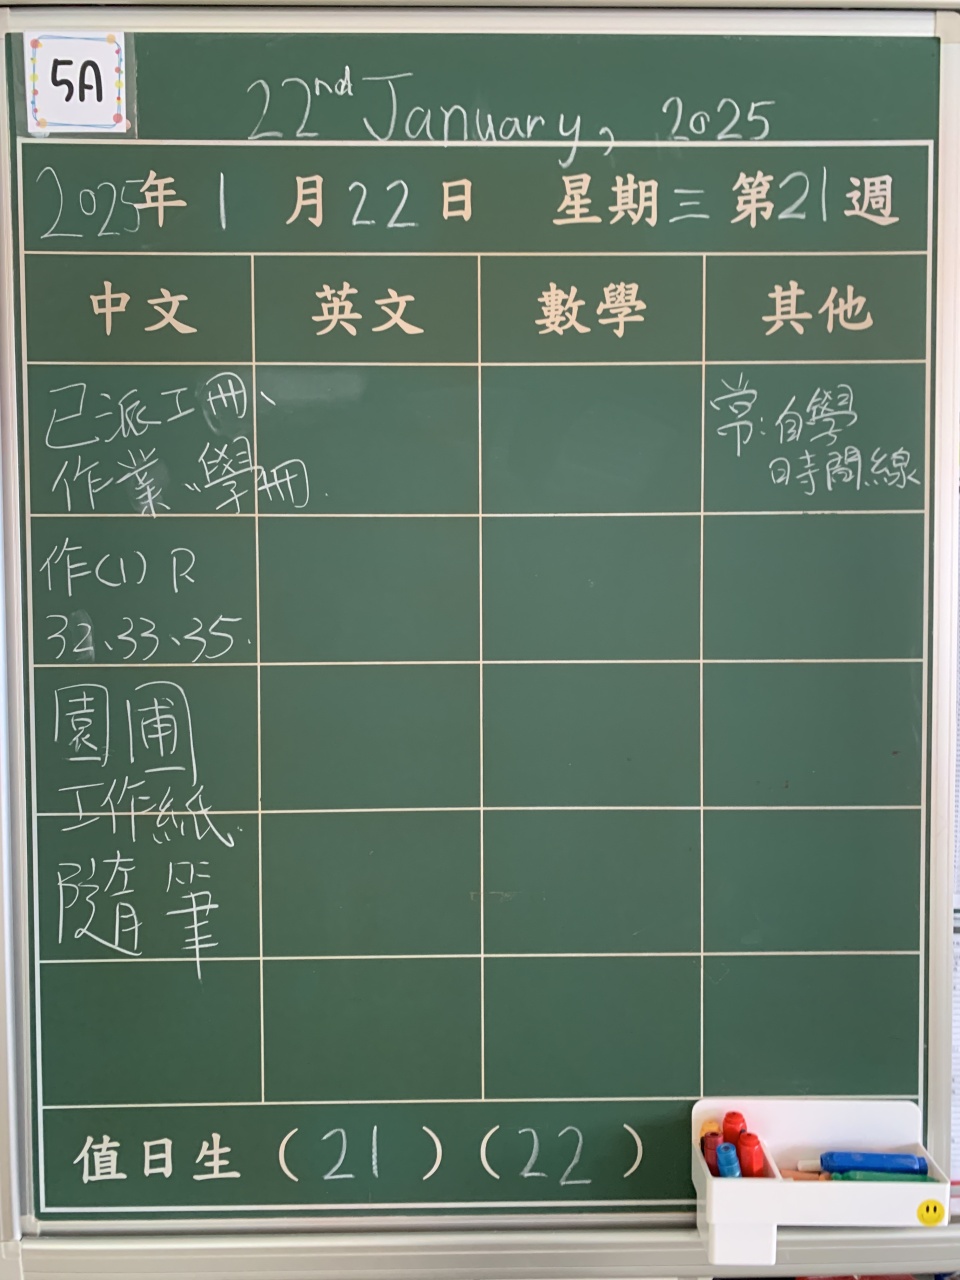 5A
22nd January, 2025
2025年1月22日 星期三 第21週
中文 英文 數學 其他
已派工冊、
作業、學冊.
常:自學
時間線
作(1) R
32、33、35.
園圃
工作紙.
隨筆
值日生 (21) (22)